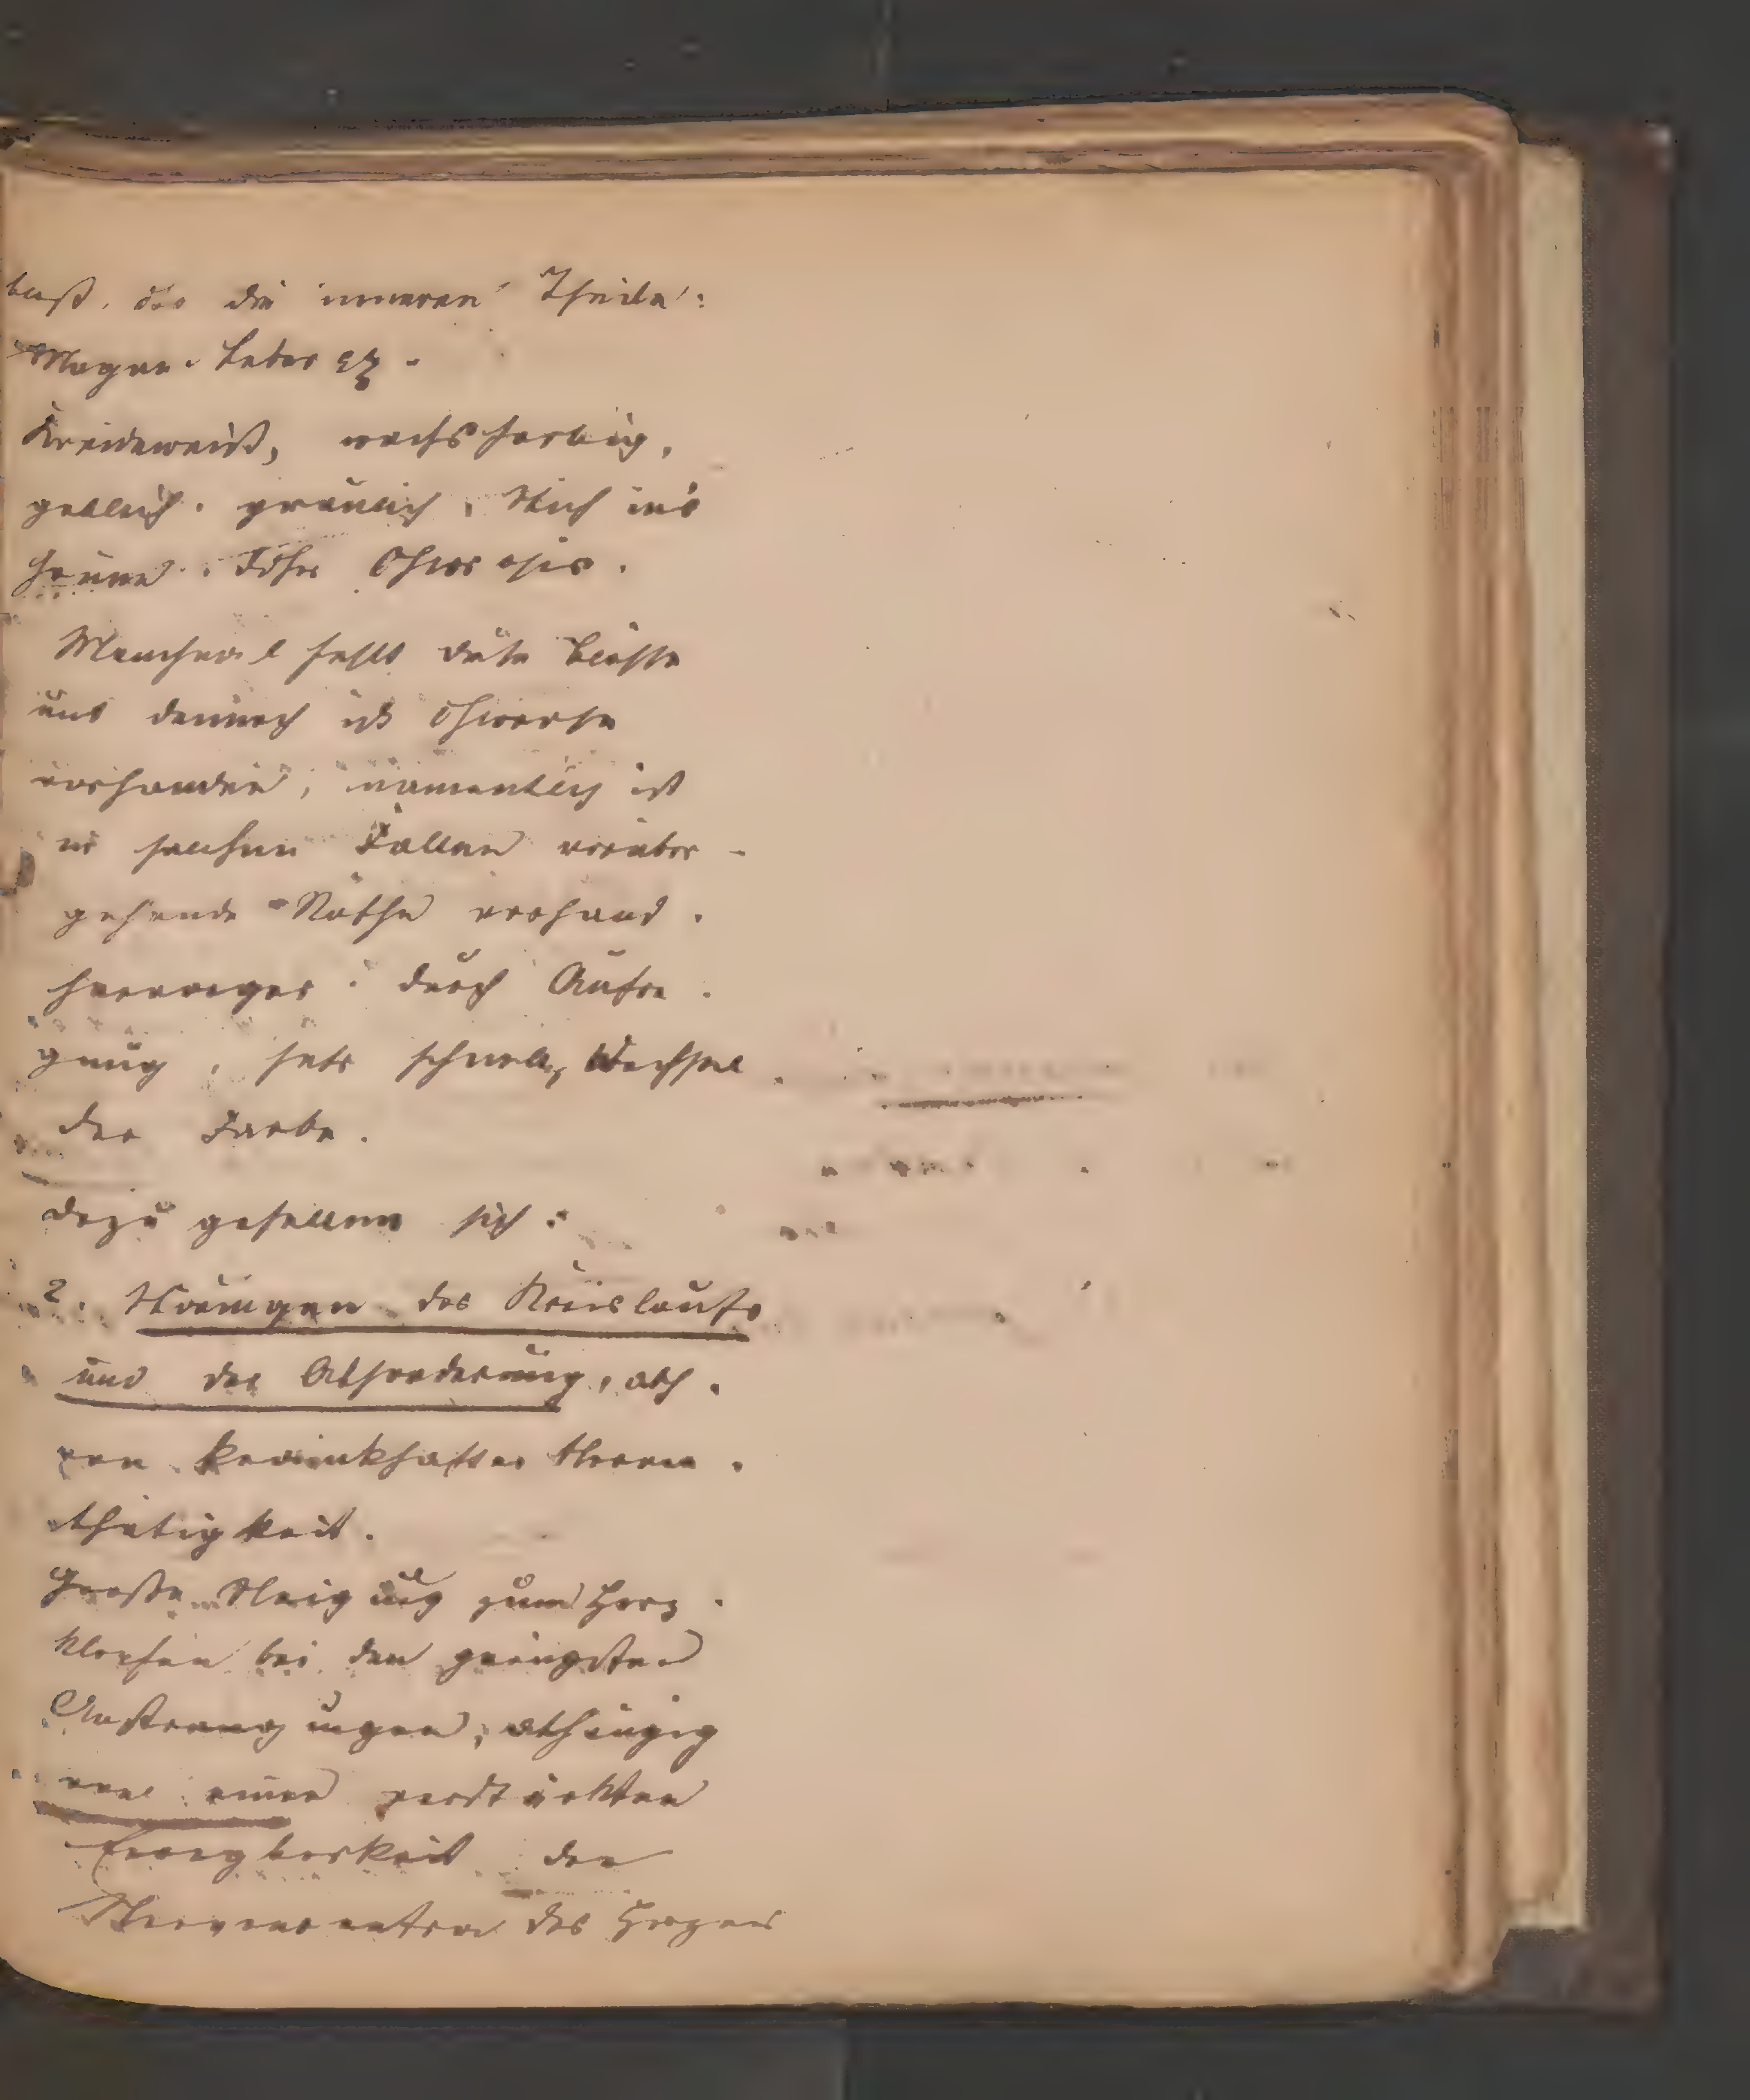 blaß, der die inneren Theile:
Magen. Leber etz.
Kreideweiß, wachsfarbig,
gelblich. graulich, Stich in's
Grüne. Daher Chlorosis.
Manchmal fehlt diese Blässe
und dennoch ist Chlorose
vorhanden, namentlich ist
in solchen Fällen vorüber-
gehende Röthe vorhand.
hervorger. durch Aufre-
gung, sehr schnell, Wechsel
der Farbe.
Dazu gesellen sich:
2. Störungen des Kreislaufs
und der Absonderung, abh.
von krankhafter Nerven-
thätigkeit.
Große Neigung zum Herz-
klopfen bei den geringsten
Anstrengungen, abhängig
von einer verstärkten
Erregbarkeit der
Nervencentren des Herzens